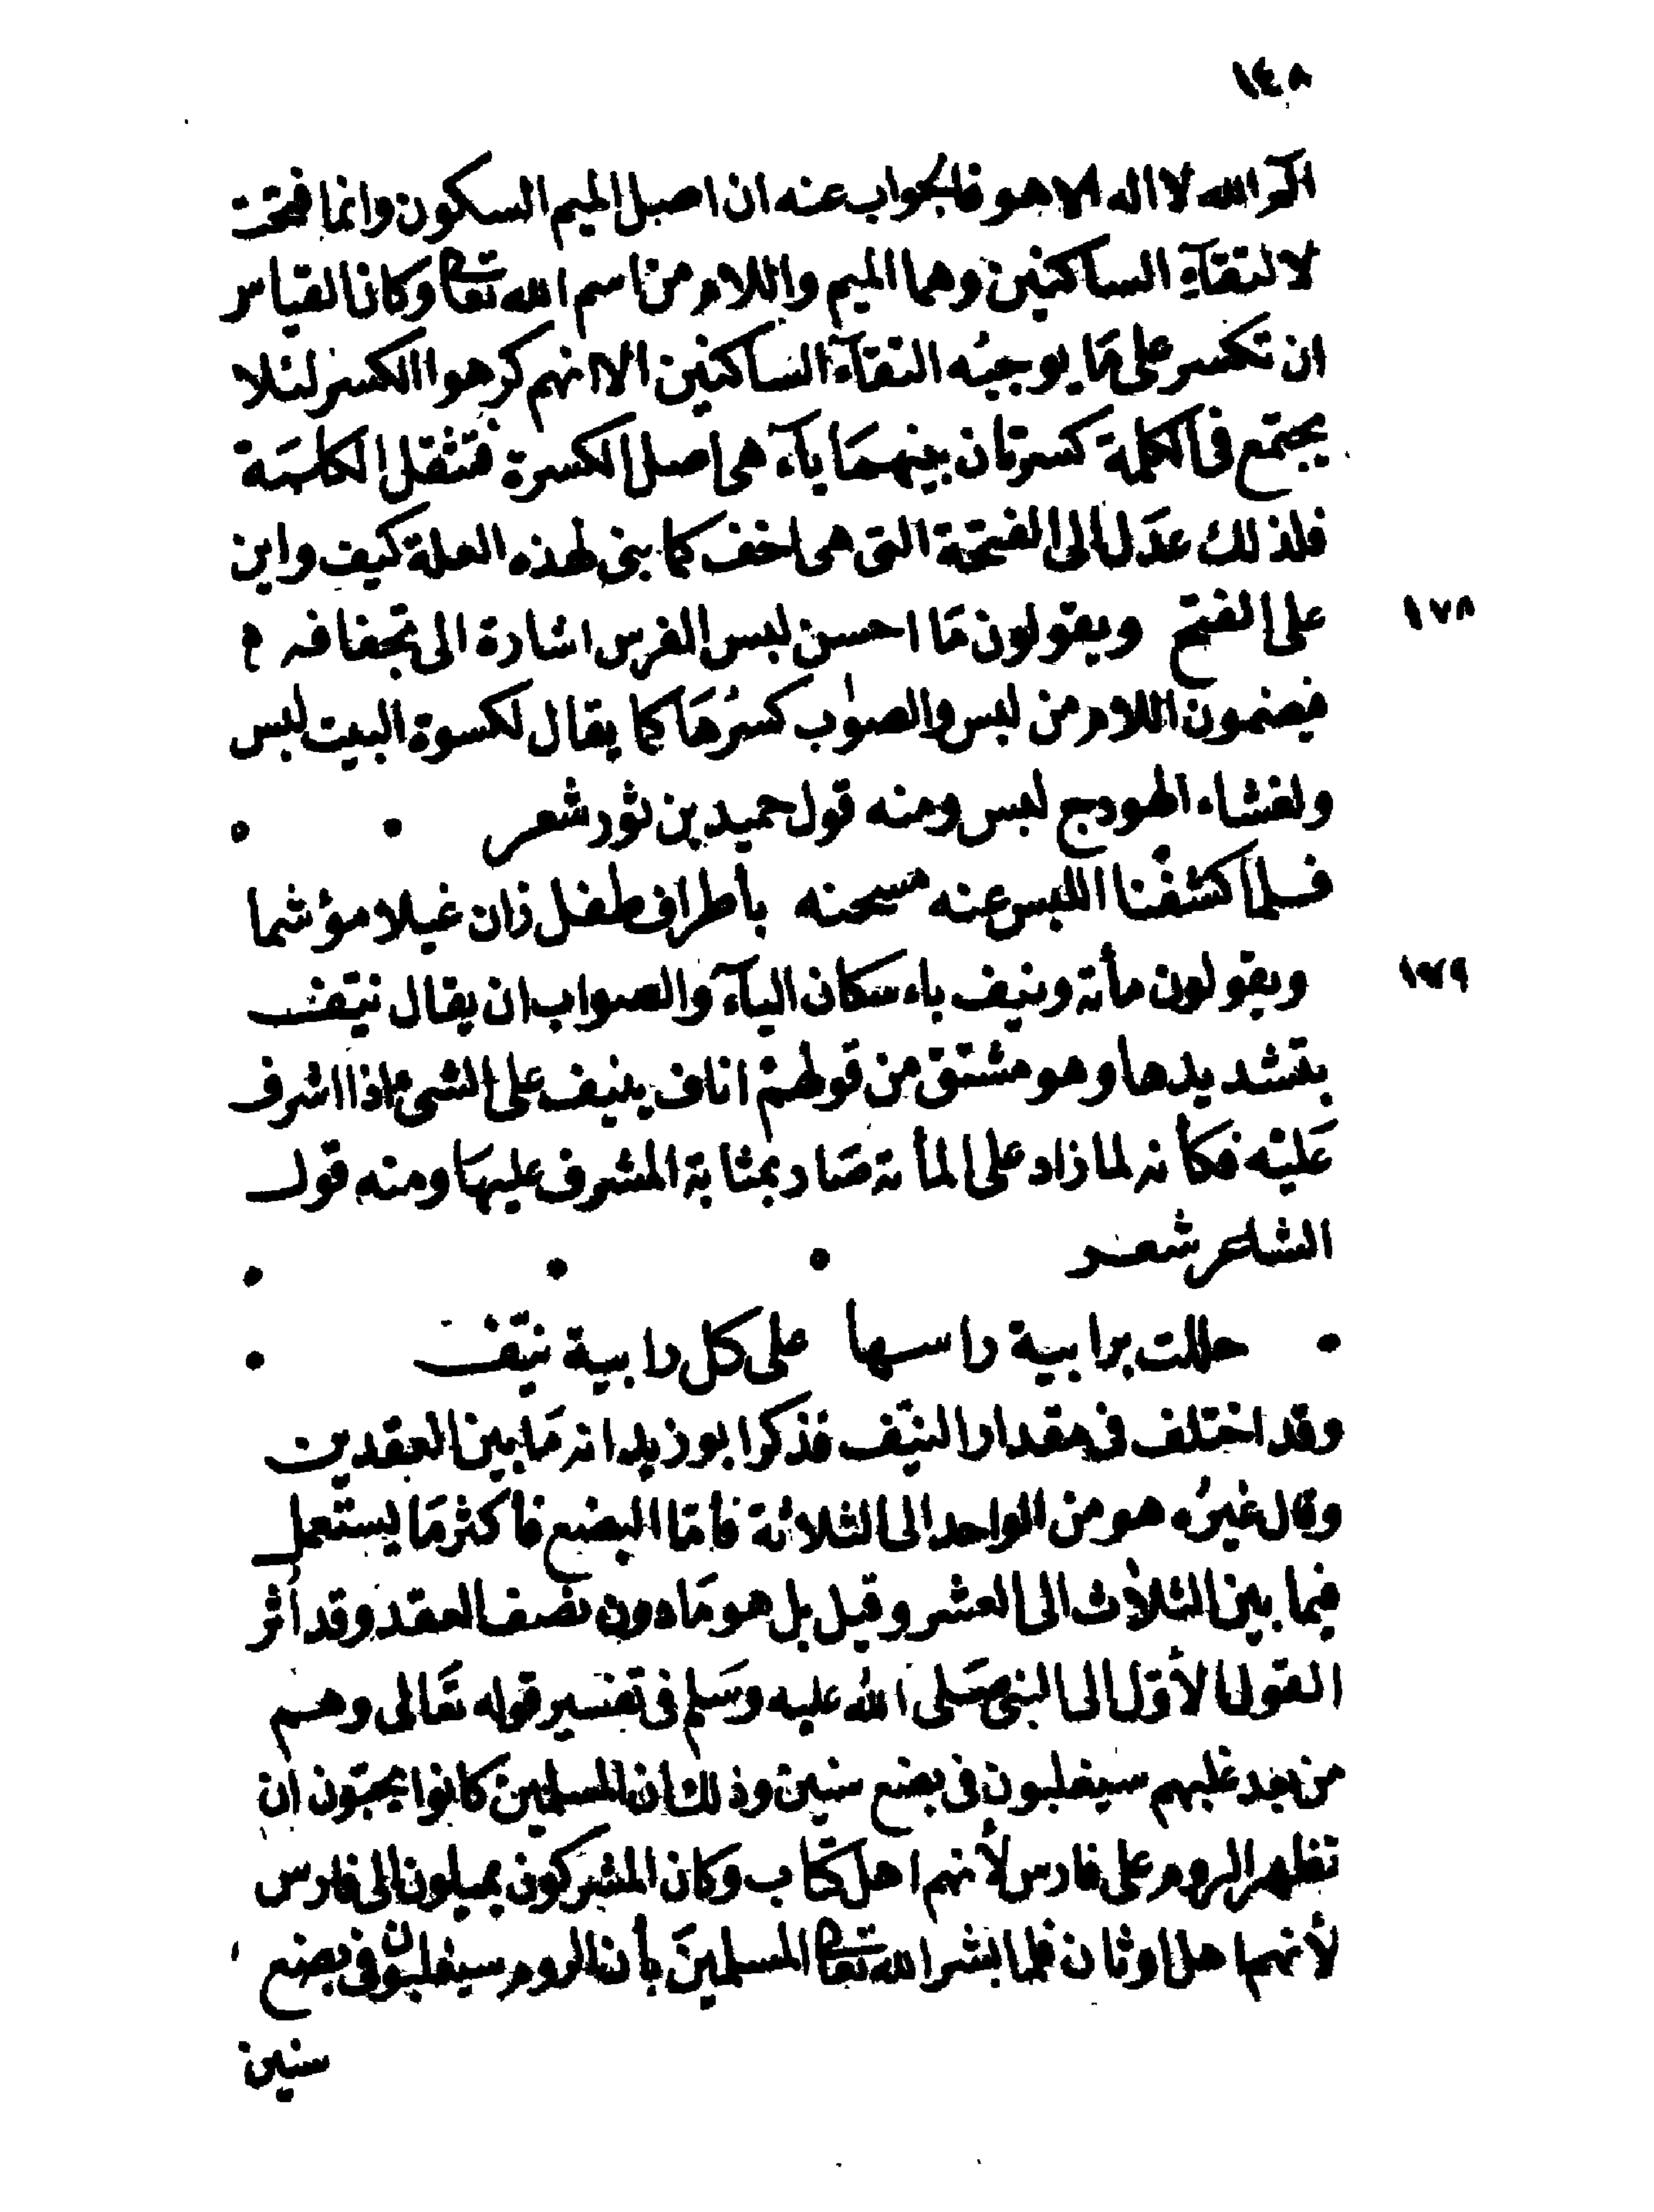 ١٤٨
الٓمٓ الله لا اله الا هو فالجواب عنه ان اصل الميم السكون وانما فتحت
لالتقآء الساكنين وهما الميم واللام من اسم الله تعا وكان القياس
ان تكسر على مَا يوجبُه التقآء الساكنين الا انهم كرهوا الكسر لئلا
يجتمع في الكلمة كسرتان بينهمَا يآء هى اصل الكسرة فتثقل الكلمَة
فلذلك عدَل الى الفتحة التى هى اخف كما بنى لهذه العلة كيف واين
على الفتح ويقولون مَا احسن لبس الفرس اشارة الى تجفافه م
١٧٨
فيضمون اللام من لبس والصوٰب كسرُهَا كما يقال لكسوة البيت لبس
ولغشاء الهودج لبس ومنه قول حميد بن ثور شعر
فلما كشفْنا اللبس عنه مسحنه باطراف طفل زان غيلا موٴشما
ويقولون مأنة ونيف باءسكان اليآء والصواب ان يقال نيّف
١٧٩
بتشديدها وهو مشتق من قولهمْ اناف ينيف على الشىء اذا اشرف
عَليْه فكأنه لما زاد على المأنة صَار بمثابة المشرف عليهَا ومنه قول
الشاعر شعر
حللت برابية راسها على كل رابية نيّف
وقد اختلف في مقدار النيّف فذكر ابو زيد انه مَا بين العقدين
وقال غيرُه هو من الواحد الى الثلاثة فأمّا البضع فأكثر مَا يستعمل
فيما بين الثلاث الى العشر وقيل بل هو مَا دون نصف العقد وقد اُثر
القول الأوّل الى النبى صَلى الله عليه وسَلم فى تفسير قوله تعَالى وهم
من بعد غلبهم سيغلبون فى بضع سنين وذلك ان المسلمين كانوا يحبّون ان
تظهر الروم على فارس لأنهم اهل كتاب وكان المشركون يميلون الى فارس
لأنهم اهل اوثان فلما بشر الله تعا المسلمينَ بأن الروم سيغلبون فى بضع
سنين